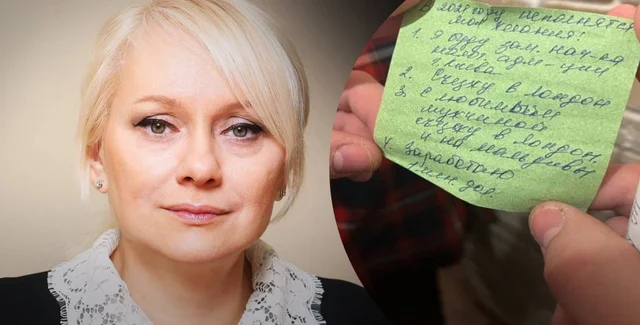 В 2021 году исполнятся
мои желания!
1. Я буду зам. нач-ка
адм-ции
г. Киева
2. в Лондон
3. С любимым
мужчиной
в Лондон
и на Мальдивы
4. Заработаю
1 млн. дол.